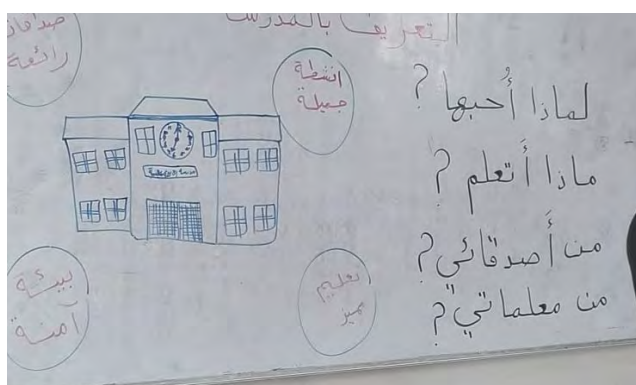 التعريف بالمدرسة
صداقات
رائعة
انشطة
جميلة
لماذا أُحبها؟
ماذا أَتعلم؟
من أَصدقائي؟
من معلماتي؟
بيئة
آمنة
تعليم
مميز